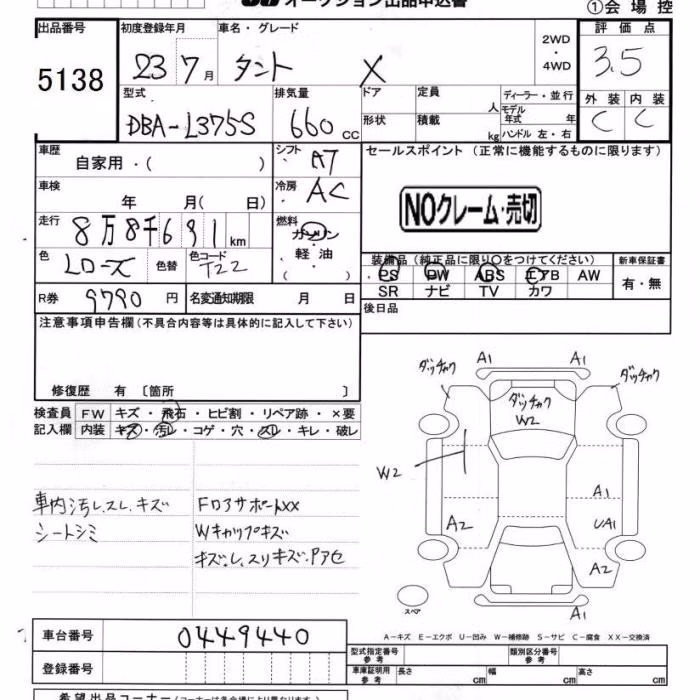 オークション出品申込書
①会場控
出品番号 初度登録年月 車名・グレード 評価点
5138 23 7月 タント X 2WD・4WD 3.5
型式 排気量 ドア 定員 人 ディーラー・並行 外装 内装
DBA-L375S 660cc 形状 積載 kg モデル年式 年 C C
ハンドル 左・右
車歴 自家用・( ) シフト AT セールスポイント (正常に機能するものに限ります)
車検 年 月( 日) 冷房 AC
NOクレーム・売切
走行 8万8千691km 燃料 ガソリン
軽油
( )
色 Lローズ 色替 色コード T22 装備品(純正品に限り○をつけてください) 新車保証書
PS PW ABS エアB AW 有・無
SR ナビ TV カワ
R券 9790円 名変通知期限 月 日 後日品
注意事項申告欄(不具合内容等は具体的に記入して下さい)
修復歴 有〔箇所 〕
検査員 FW キズ・飛石・ヒビ割・リペア跡・×要
記入欄 内装 キズ・汚レ・コゲ・穴・スレ・キレ・破レ
車内汚レスレ.キズ Fロアサポートxx
シートシミ Wキャップキズ
キズ.
ダッチャク A1 A1 ダッチャク
ダッチャク
W2
W2
A1
A2 UA1
A2
A1
スペア
A-キズ E-エクボ U-凹み W-補修跡 S-サビ C-腐食 XX-交換済
車台番号 0449440
型式指定番号 参考 類別区分番号 参考
登録番号 車庫証明用 参考 長さ cm 幅 cm 高さ cm
希望出品コーナー